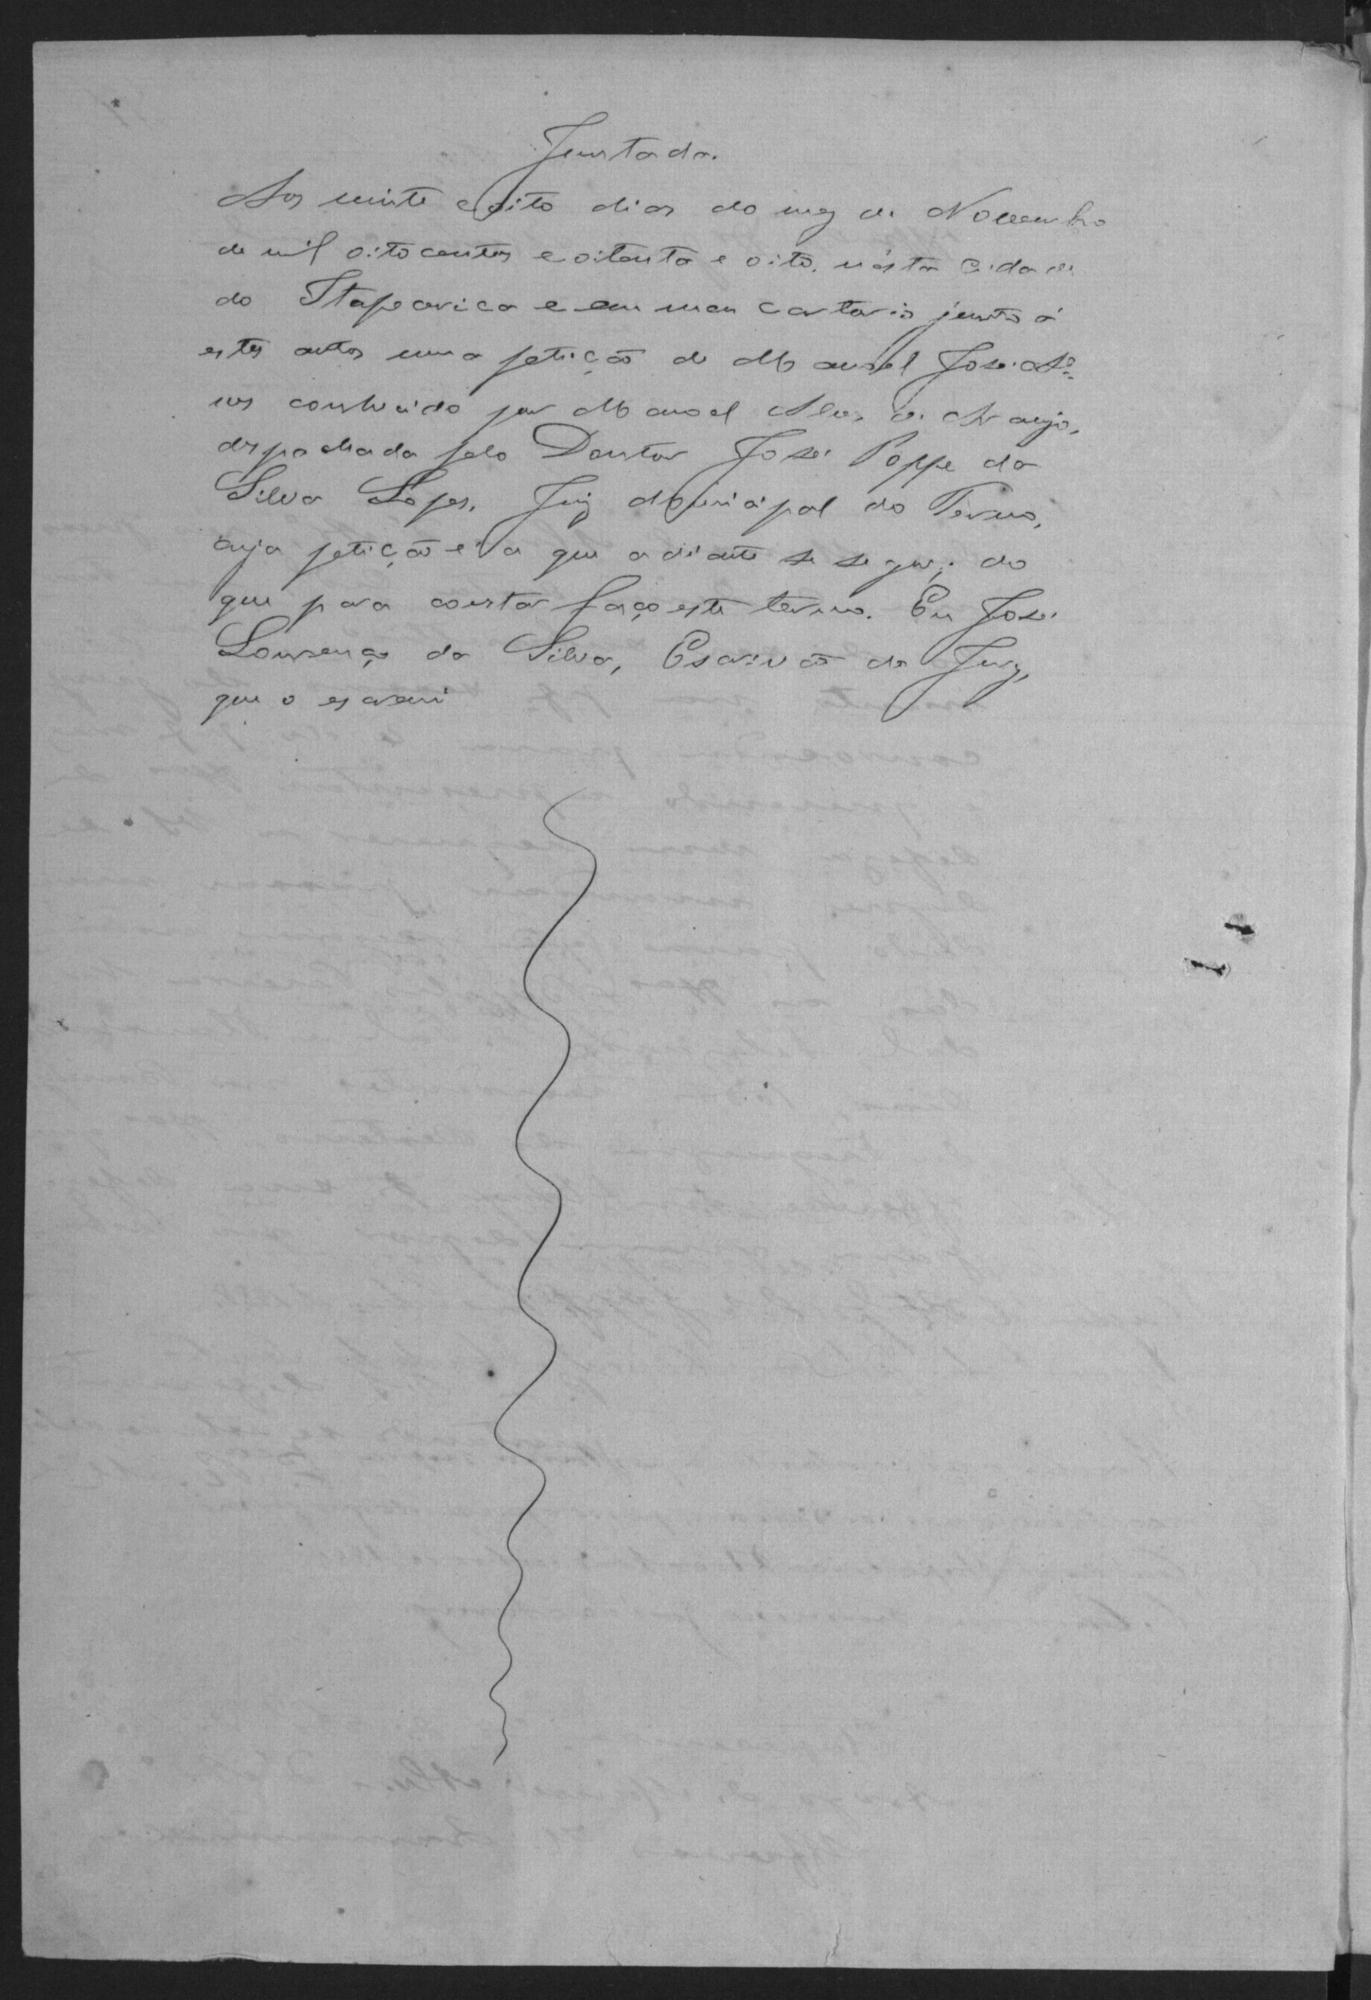 Juntada.
Aos vinte e oito dias do mez de Novembro
de mil oitocentos e oitenta e oito, nésta cidade
de Itaparica e em meu cartorio junto á
estes autos uma petição de Manoel José
conhecido por Manoel Alves de Araujo,
despachada pelo Doutor José Poppe da
Silva Lopes, Juiz Municipal do Termo,
cuja petição é a que adiante se segue; do
que para constar faço este termo. Eu José
Lourenço da Silva, Escrivão do Jury,
que o escrevi